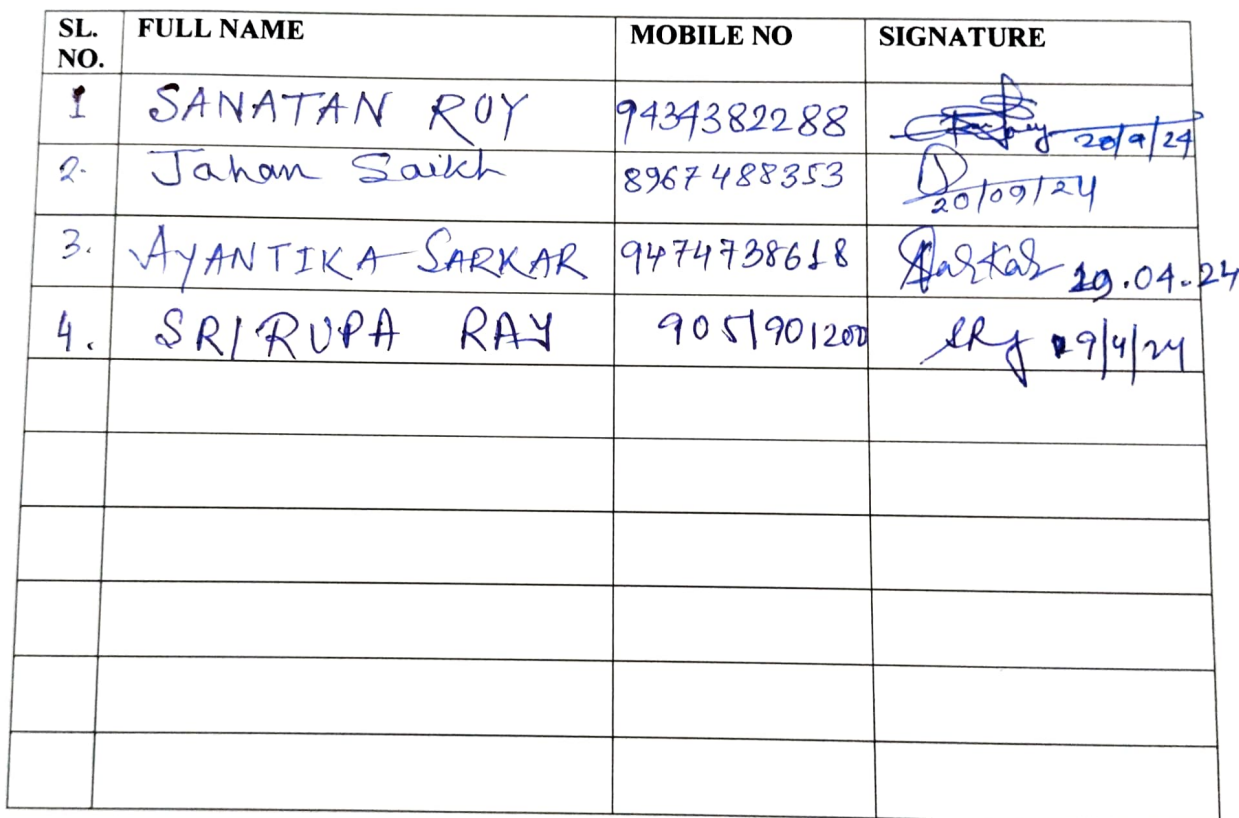 SL. NO. FULL NAME MOBILE NO SIGNATURE
1 SANATAN ROY 9434382288 20/9/24
2. Jahan Saikh 8967488353 20/09/24
3. AYANTIKA SARKAR 9474738618 Sarkar 29.04.24
4. SRIRUPA RAY 9051901200 SRy 29/4/24